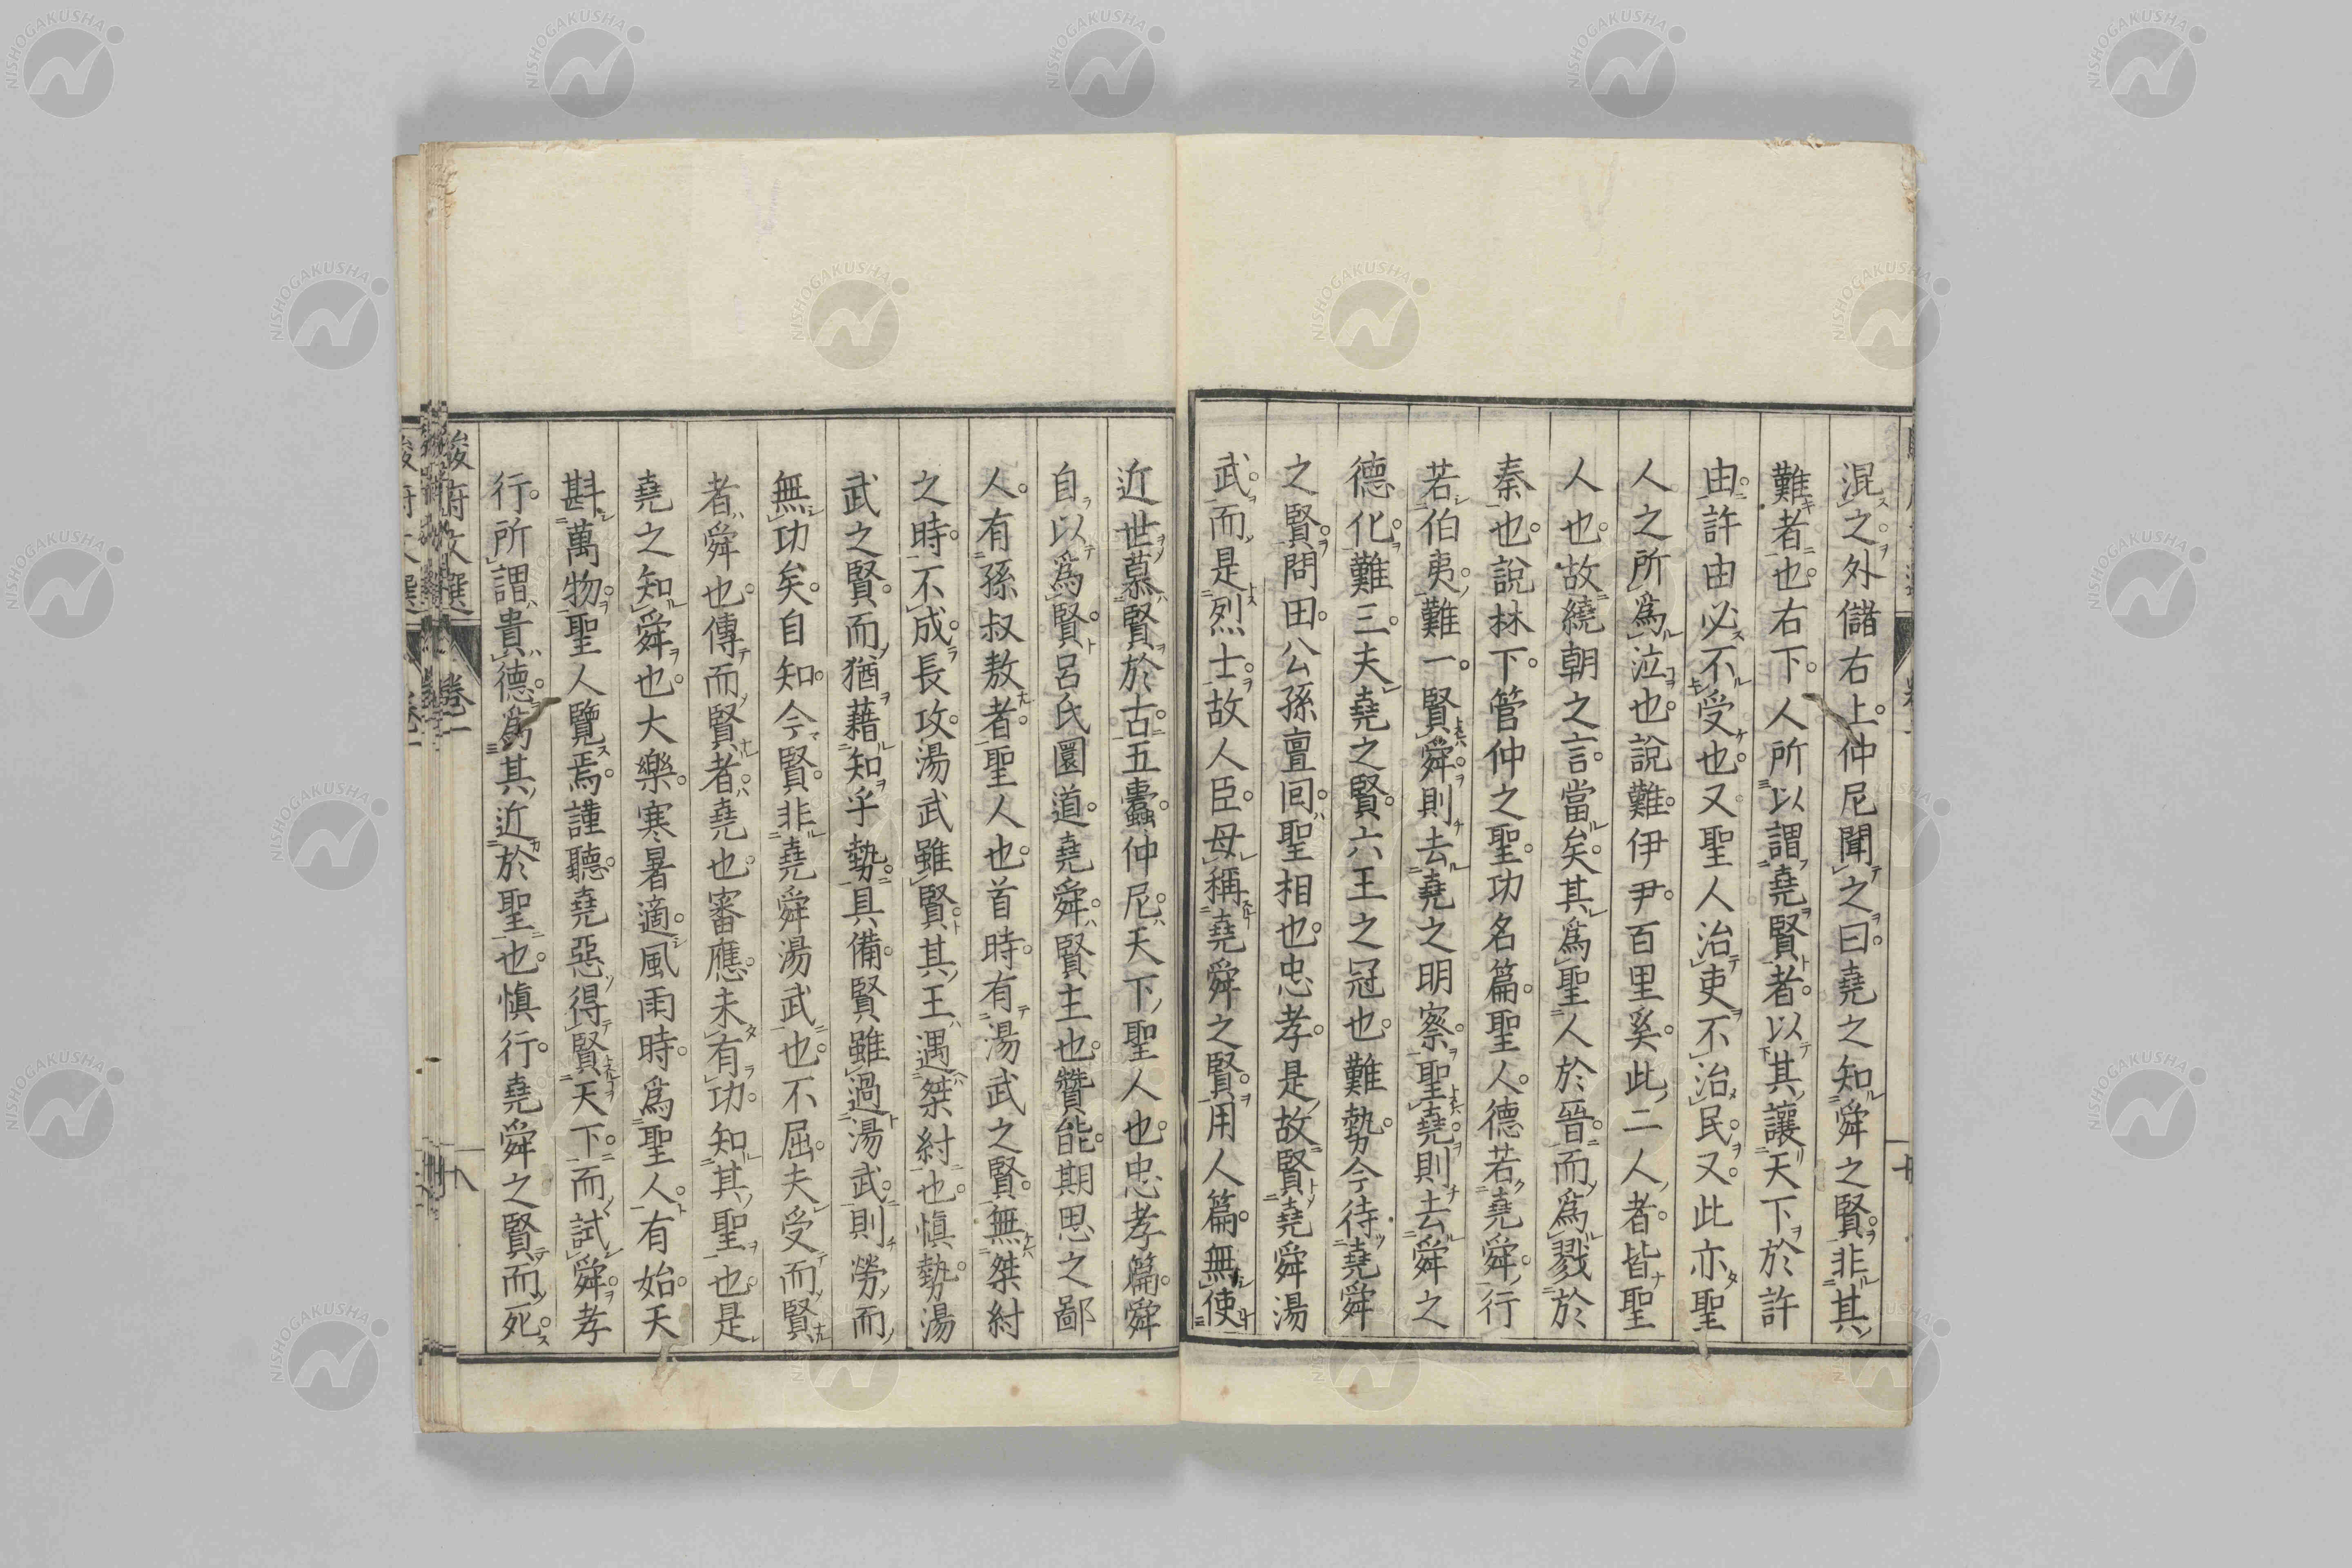 混之外儲右上仲尼聞之曰堯之知舜之賢非其
難者也右下人所以謂堯賢者以其讓天下於許
由許由必不受也又聖人治吏不治民又此亦聖
人之所爲泣也說難伊尹百里奚此二人者皆聖
人也故繞朝之言當矣其爲聖人於晉而爲戮於
秦也說林下管仲之聖功名篇聖人德若堯舜行
若伯夷難一賢舜則去堯之明察聖堯則去舜之
德化難三夫堯之賢六王之冠也難勢今待堯舜
之賢問田公孫亶回聖相也忠孝是故賢堯舜湯
武而是烈士故人臣毋稱堯舜之賢用人篇無使
近世慕賢於古五蠹仲尼天下聖人也忠孝篇舜
自以爲賢呂氏圜道堯舜賢主也贊能期思之鄙
人有孫叔敖者聖人也首時有湯武之賢無桀紂
之時不成長攻湯武雖賢其王遇桀紂也愼勢湯
武之賢而猶藉知乎勢具備賢雖過湯武則勞而
無功矣自知今賢非堯舜湯武也不屈夫受而賢
者舜也傳而賢者堯也審應未有功知其聖也是
堯之知舜也大樂寒暑適風雨時爲聖人有始天
斟萬物聖人覽焉謹聽堯惡得賢天下而試舜孝
行所謂貴德爲其近於聖也愼行堯舜之賢而死
駿府文選 卷一